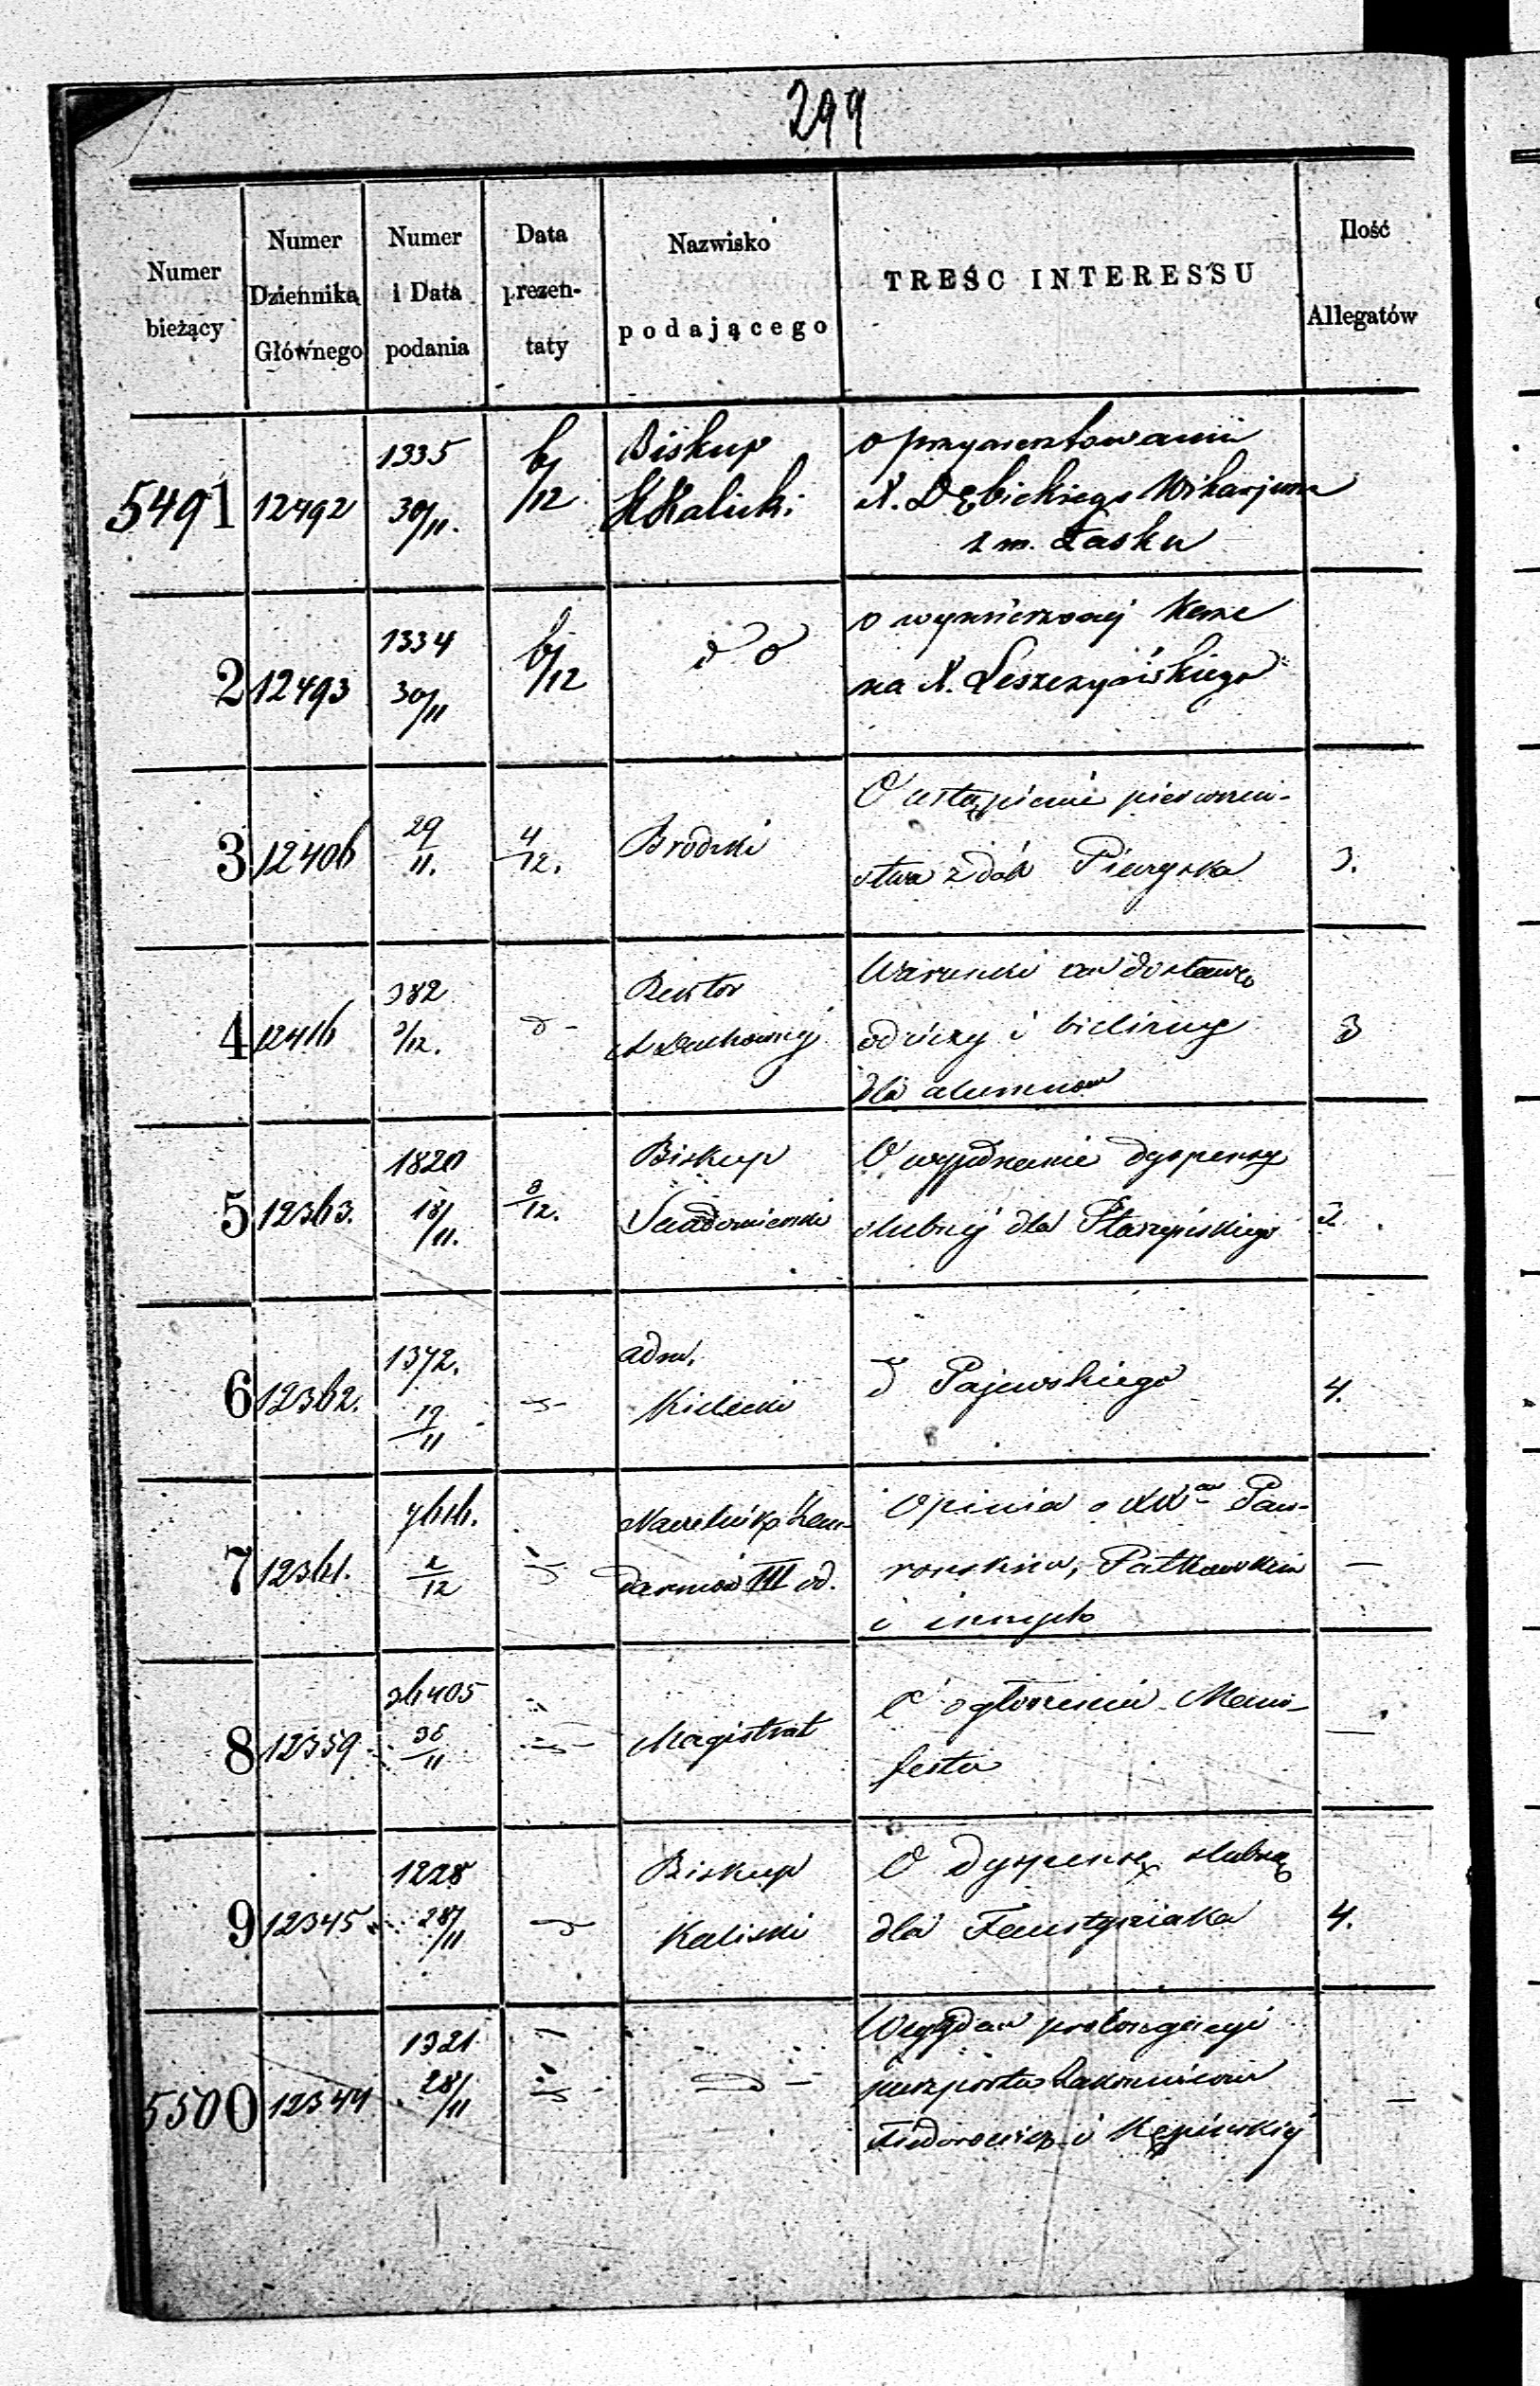 299
Numer bieżący
Numer Dziennika Głównego
Numer i Data podania
Data prezen-taty
Nazwisko podającego
TREŚC INTERESSU
Ilość Allegatów
5491 12492 1335 30/11. 6/12 Biskup Kaliski
o przyaresztowaniu
X. Dębickiego Wikarjusza
z m. Łasku
2 12493 1334 30/11 6/12 do
o wymierzonej karze
na X. Leszczyńskiego
3 12406 29/11. 4/12. Brodzki
O ustąpienie pierwszeń-
stwa z dóbr 3.
4 12416 382 3/12. d- Rektor A. Duchownej
Warunki na dostawę
odzieży i bielizny
dla alumnow 3
5 12363. 1820 18/11. 3/12. Biskup Sandomierski
O wyjednanie dyspensy
slubnej dla Starzyńskiego
6 12362. 1372. 19/11 adm. Kielecki
d Pajewskiego 4.
7 12361. 7616. 2/12 Naczelnik Żan-
darmów III od.
Opinia o XX Paw-
i innych —
8 12359 36405 Magistrat
O ogłoszeniu Mani-
festu —
9 12345 1228 28/11 Biskup Kaliski
O dyspensę slubną
dla Faustyniaka 4.
5500 12344 1321 28/11
prolongacyi
paszportu
i Kępińskiej —